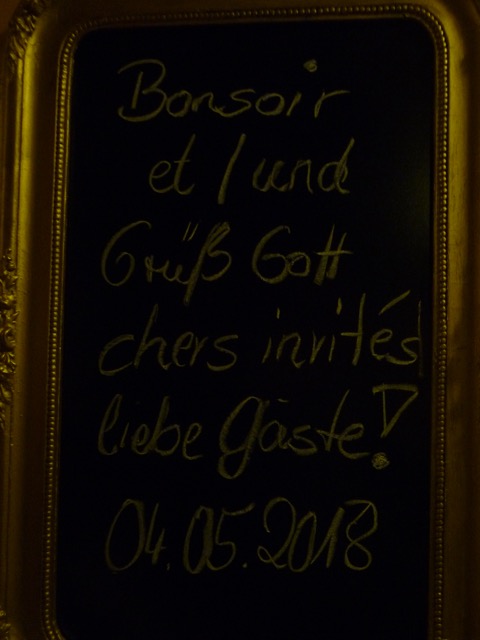 Bonsoir
et / und
Grüß Gott
chers invités
liebe Gäste!
04.05.2018